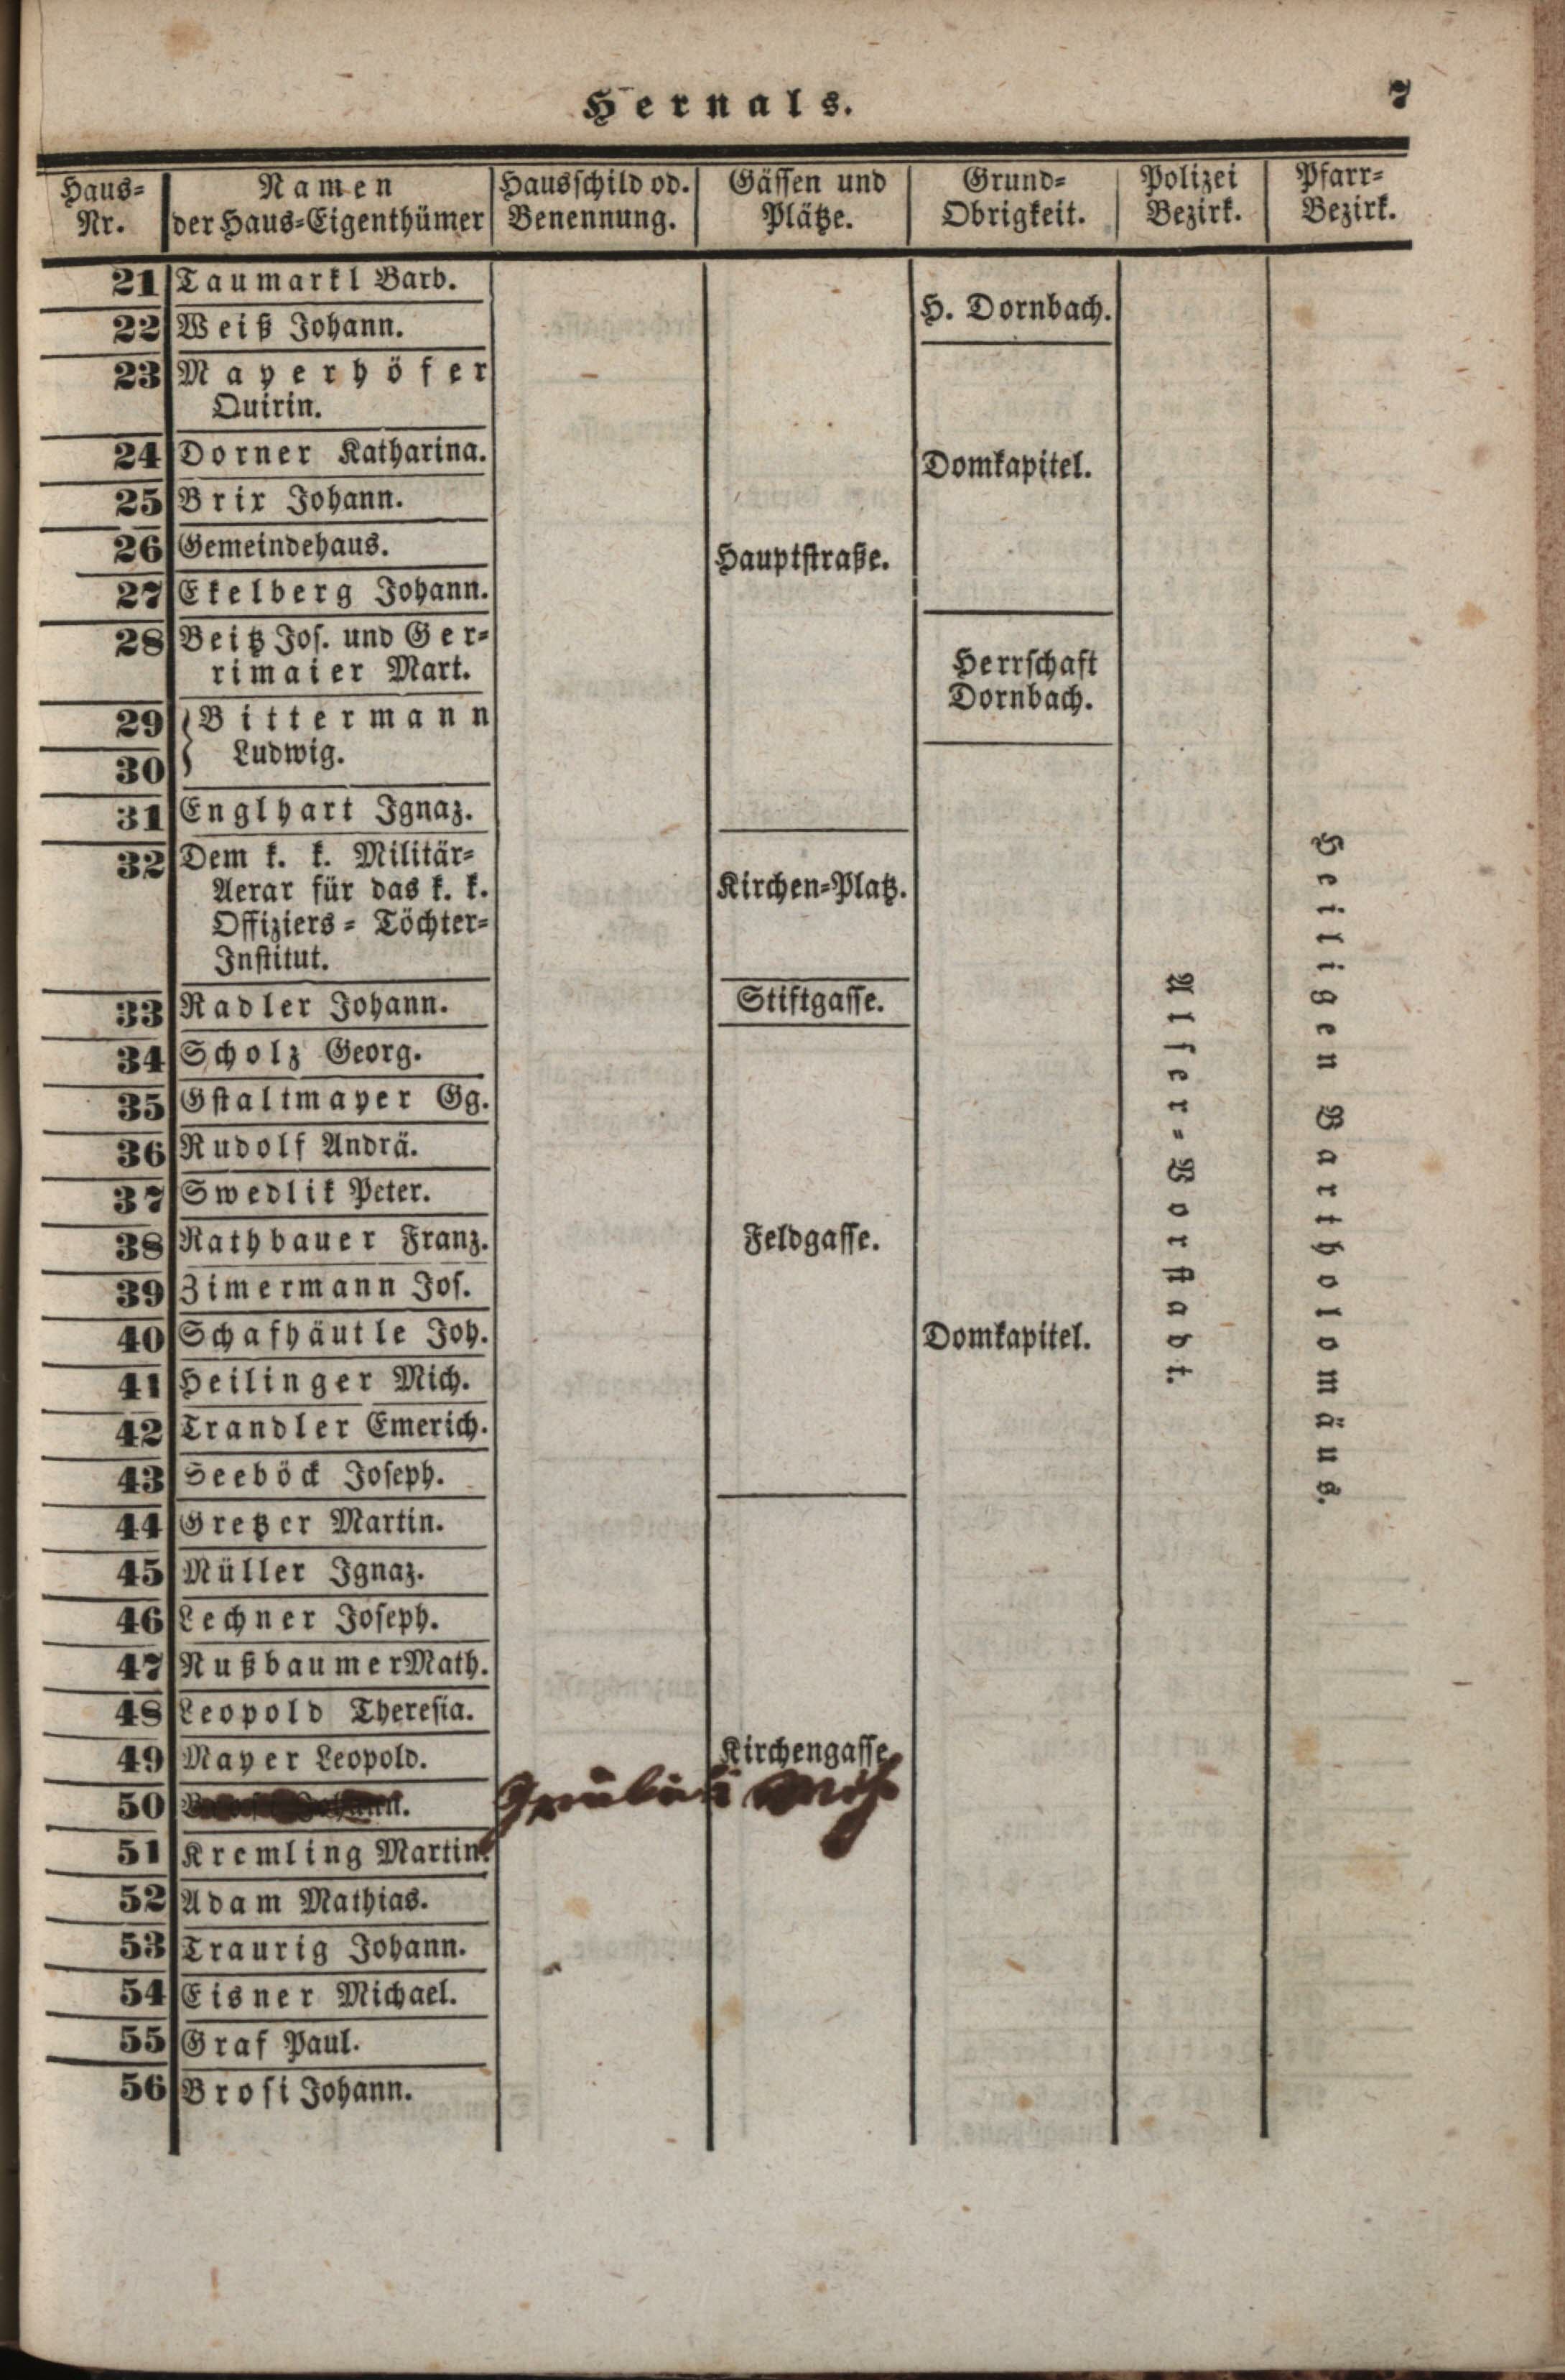 Hernals.
7
Haus-Nr.
Namen der Haus-Eigenthümer
Hausschild od. Benennung.
Gässen und Plätze.
Grund-Obrigkeit.
Polizei Bezirk.
Pfarr-Bezirk.
21 Taumarkl Barb.
H. Dornbach.
22 Weiß Johann.
23 Mayerhöfer
Quirin.
24 Dorner Katharina.
Domkapitel.
25 Brix Johann.
26 Gemeindehaus.
Hauptstraße.
27 Ekelberg Johann.
28 Beitz Jos. und Ger-
rimaier Mart.
Herrschaft
Dornbach.
29 Bittermann
30 Ludwig.
31 Englhart Ignaz.
32 Dem k. k. Militär-
Aerar für das k. k.
Offiziers-Töchter-
Institut.
Kirchen-Platz.
33 Radler Johann.
Stiftgasse.
34 Scholz Georg.
35 Gstaltmayer Gg.
36 Rudolf Andrä.
37 Swedlik Peter.
38 Rathbauer Franz.
Feldgasse.
39 Zimermann Jos.
40 Schafhäutle Joh.
Domkapitel.
41 Heilinger Mich.
42 Trandler Emerich.
43 Seeböck Joseph.
44 Gretzer Martin.
45 Müller Ignaz.
46 Lechner Joseph.
47 Nußbaumer Math.
48 Leopold Theresia.
49 Mayer Leopold.
Kirchengasse
50
51 Kremling Martin.
52 Adam Mathias.
53 Traurig Johann.
54 Eisner Michael.
55 Graf Paul.
56 Brosi Johann.
Alser-Vorstadt.
Heiligen Bartholomäus.